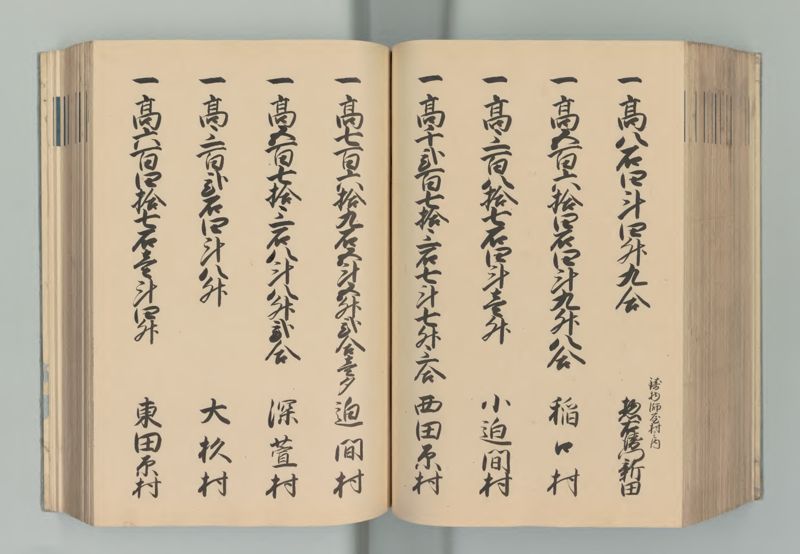 一 高八石四斗四升九合
鋳物師屋村之内
惣右衛門新田
一 高五百六拾四石四斗九升八合
稲口村
一 高三百八拾七石四斗壱升
小迫間村
一 高千弐百七拾三石七斗七升三合
西田原村
一 高七百六拾九石五斗五升弐合壱夕
迫間村
一 高五百七拾三石八斗八升弐合
深萱村
一 高三百弐石四斗八升
大杉村
一 高六百四拾七石壱斗四升
東田原村